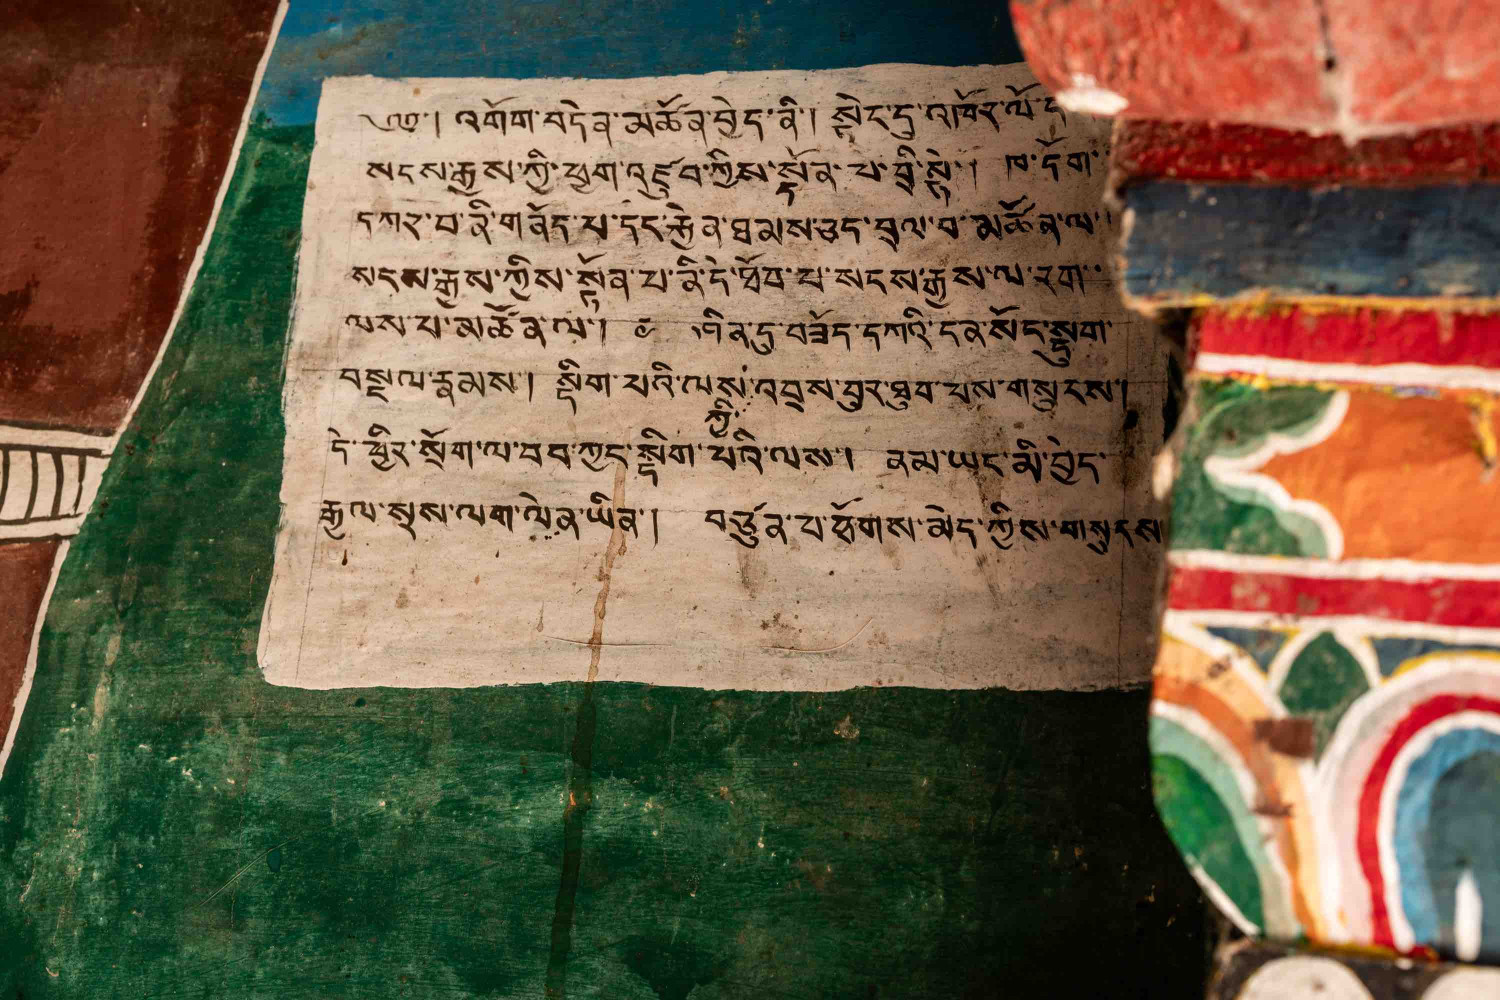 ༄༅།  འགོག་བདེན་མཚོན་བྱེད་ནི། སྟེང་དུ་འཁོར་ལོ་
སངས་རྒྱས་ཀྱི་ཕྱག་འཛུབ་ཀྱིས་སྟོན་པ་བྲི་སྟེ། ཁ་དོག་
དཀར་པ་ནི་གནོད་པ་དང་རྐྱེན་ཐམས་ཅད་བྲལ་བ་མཚོན་ལ།
སངས་རྒྱས་ཀྱིས་སྟོན་པ་ནི་དེ་ཐོབ་པ་སངས་རྒྱས་ལ་རག་
ལས་པ་མཚོན་ལ། ༈ ཤིན་ཏུ་བཟོད་དཀའི་ངན་སོང་སྡུག་
བསྔལ་རྣམས། སྡིག་པའི་ལས་ཀྱི་འབྲས་བུར་ཐུབ་པས་གསུངས།
དེ་ཕྱིར་སྲོག་ལ་བབ་ཀྱང་སྡིག་པའི་ལས། ནམ་ཡང་མི་བྱེད་
རྒྱལ་སྲས་ལག་ལེན་ཡིན། བཙུན་པ་ཐོགས་མེད་ཀྱིས་གསུངས།